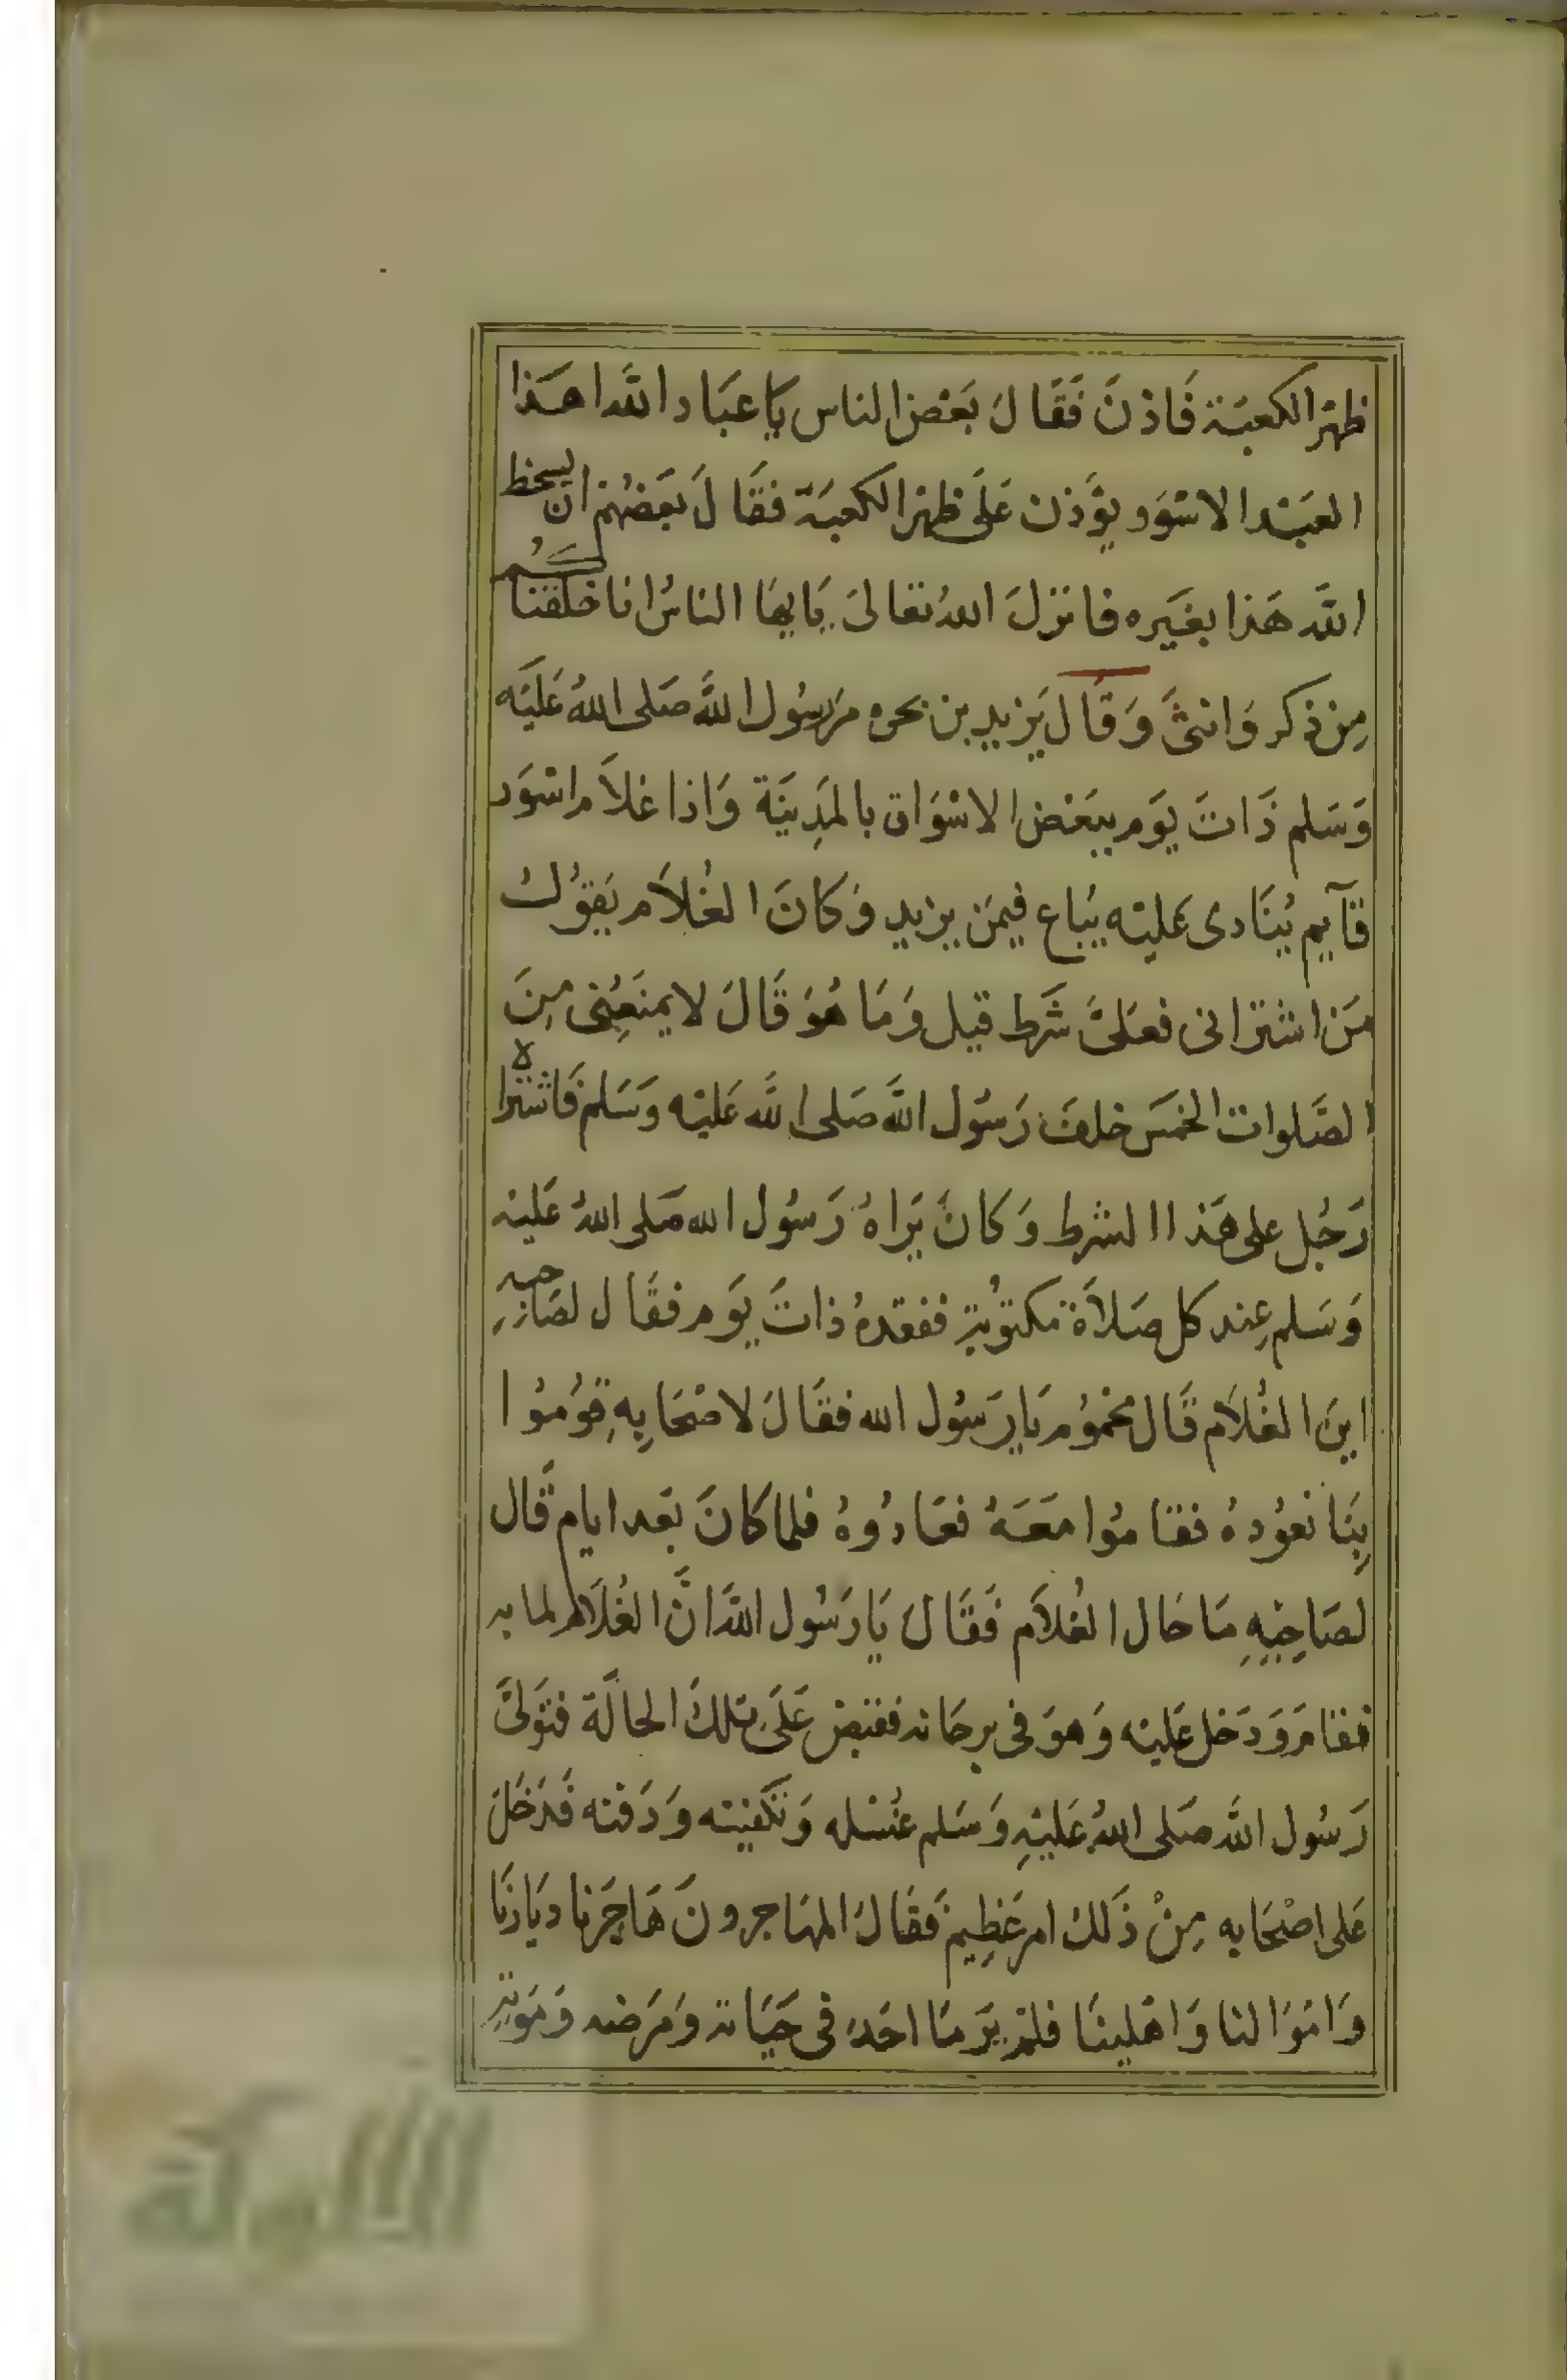 ظهر الكعبة فاذنَ فَقَالَ بَعْض الناس يَا عبَاد الله اهَذا
العَبْد الاسْوَد يؤذن عَلَى ظهر الكعبَة فقَالَ بَعضهُم ان يسخط
اللَّه هَذا بغَيره فانزلَ اللهُ تعَالىَ يَايهَا الناسُ انا خلقناكُم
مِن ذكر وَانثىَ وَقَال يَزيد بن بحره مَر رسُول اللَّه صَلى اللهُ عَليْه
وَسَلم ذَاتَ يَوم ببَعْض الاسْوَاق بالمَدِينَة وَاذا غلاَم اسْوَد
قآيم يُنَادى عَليْه يبَاع فيمَن يزيد وَكانَ الغُلاَم يَقوُلُ
مَن اشتراني فعَلىَّ شَرط قيل وَمَا هُوَ قَالَ لا يمنَعُنى مِنَ
الصَّلوات الخمسَ خلفَ رَسوُل اللَّه صَلى اللَّه عَليْه وَسَلم فَاشتراه
رَجُل على هَذا الشرط وَكانَ يَراهُ رَسُول الله صَلى اللهُ عَليْه
وَسَلم عِند كل صَلاَة مكتوُبةٍ ففقدهُ ذاتَ يَوم فقَال لصَاحبهِ
اينَ الغُلاَم قَال محموُم يَا رَسوُل الله فقَالَ لاصْحَابِهِ قوُمُوا
بِنَا نعوُدهُ فقامُوا مَعَهُ فعَادُوهُ فلما كانَ بَعد ايام قَال
لصَاحِبِهِ مَا حَال الغُلاَم فَقَالَ يَا رَسُول اللَّه انَّ الغُلاَم لما به
فقامَ وَدَخل عَليْه وَهوَ في برحَانه فقبض عَلَى تلكَ الحالَة فتَولىَّ
رَسُول اللَّه صَلى اللهُ عَليْهِ وَسَلم غُسْله وَتكفينه وَدَفنه فَدَخَلَ
عَلى اصْحَابه مِنْ ذَلكَ امر عَظِيم فَقَالَ المهَاجرونَ هَاجَرنا ديَارنَا
وَامْوَالنا وَاهْلينَا فلم يَر منَا احَدُ في حَيَاته وَمَرَضه وَمَوتهِ